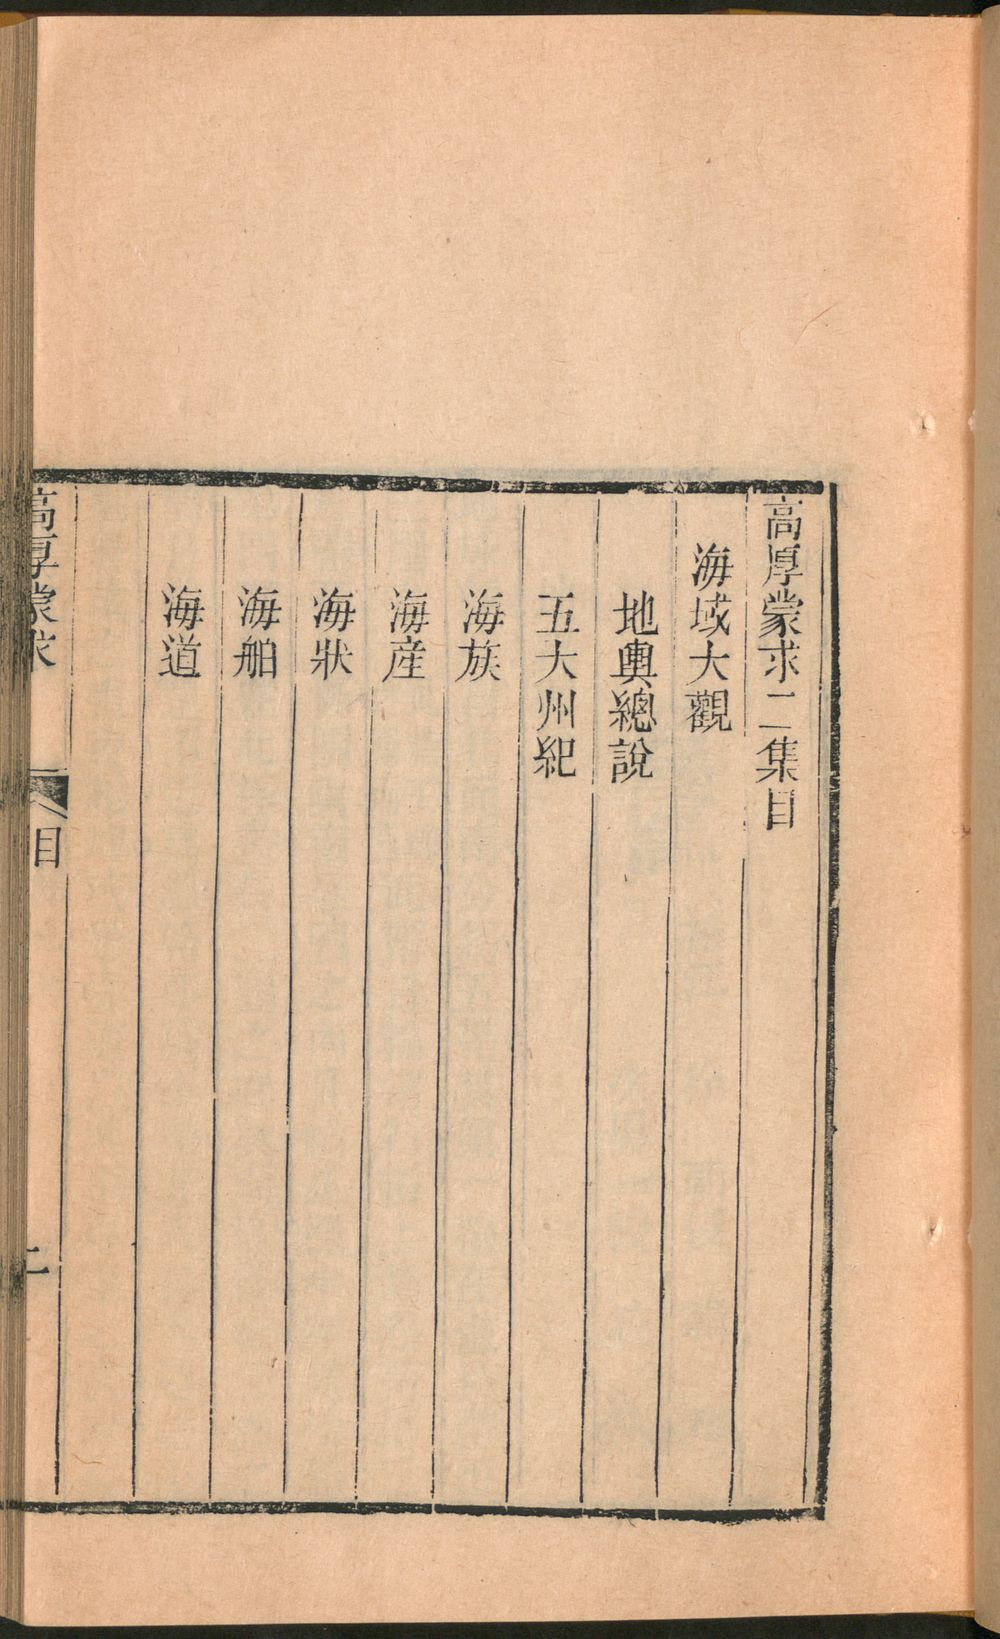 高厚蒙求二集目
海域大觀
地輿總說
五大州紀
海族
海産
海狀
海舶
海道
高厚蒙求
目